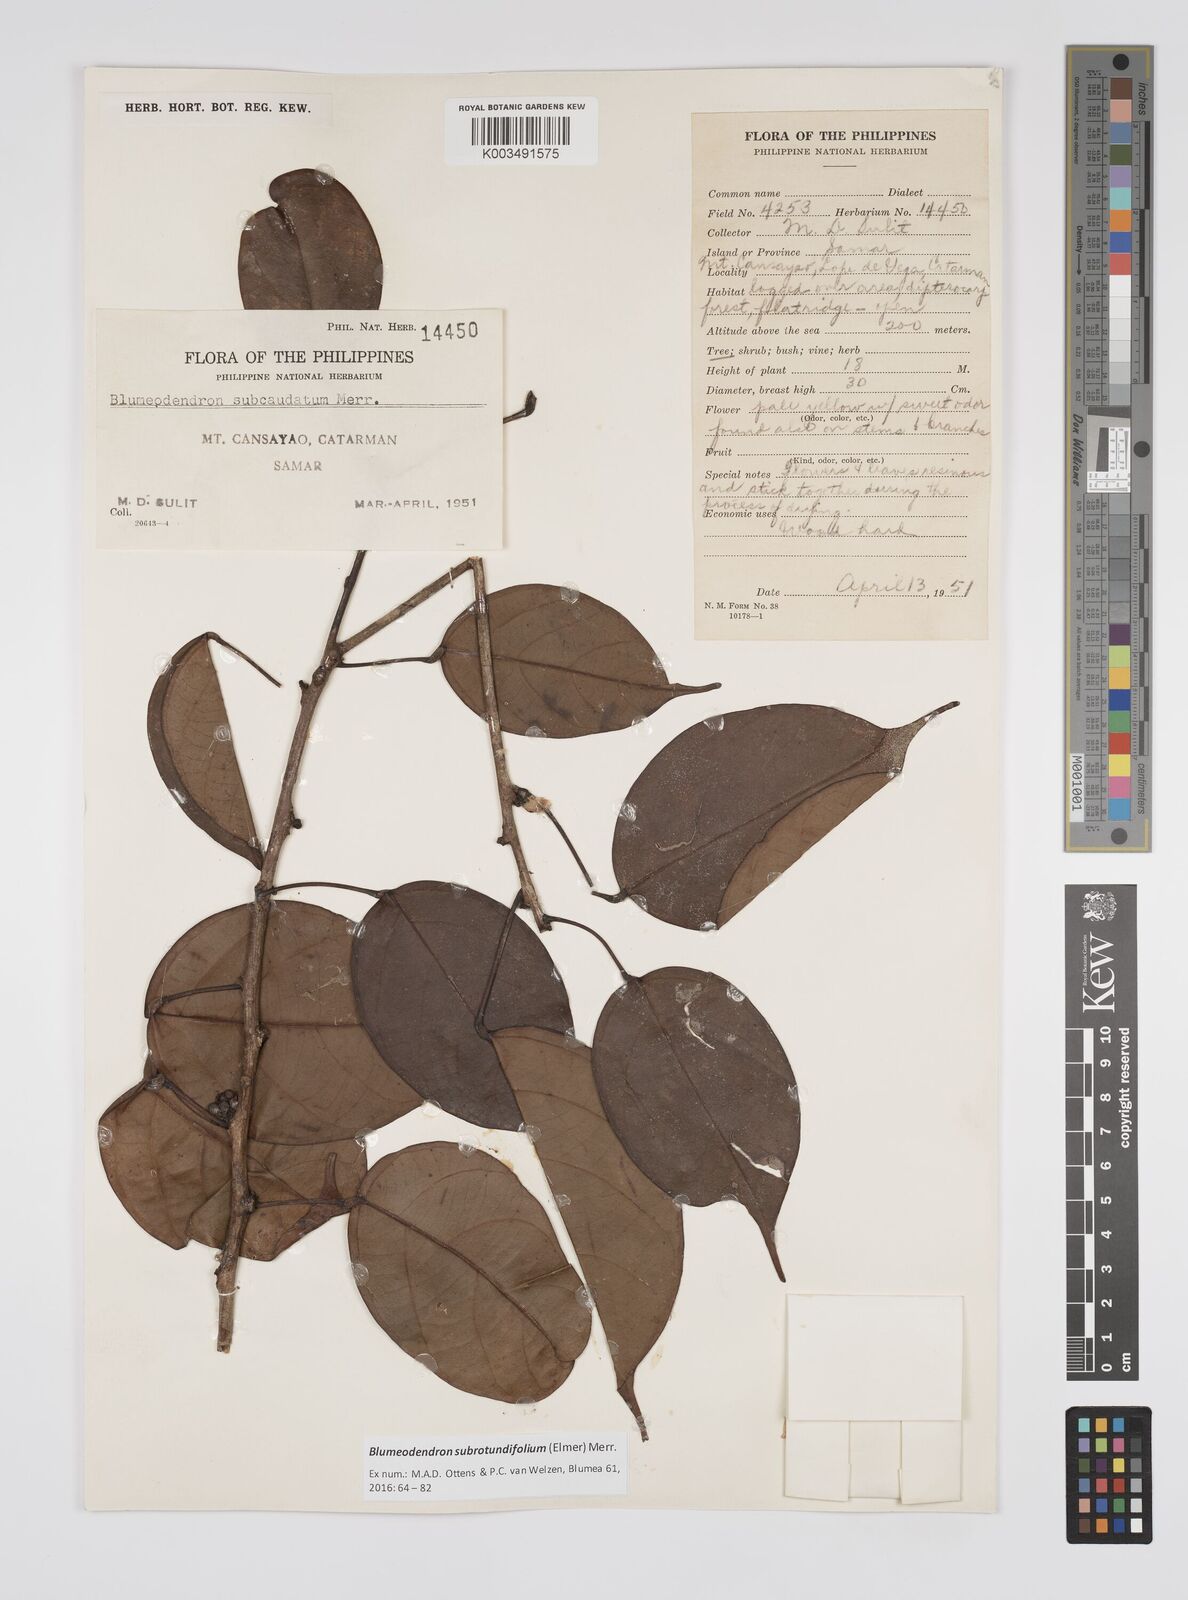 HERB. HORT. BOT. REG. KEW.
ROYAL BOTANIC GARDENS KEW
K003491575
FLORA OF THE PHILIPPINES
PHILIPPINE NATIONAL HERBARIUM
Common name Dialect
Field No. 4253 Herbarium No. 14450
Collector M. D. Sulit
Island or Province Samar
Locality Mt. Cansayao, Lope de Vega, Catarman
Habitat logged over area, dipterocarp
forest, flatridge - open
Altitude above the sea 200 meters.
Tree; shrub; bush; vine; herb
Height of plant 18 M.
Diameter, breast high 30 Cm.
Flower pale yellow w/ sweet odor
(Odor, color, etc.)
found also on stems & branches
Fruit
(Kind, odor, color, etc.)
Special notes Flowers & leaves resinous
and stick together during the
process of drying.
Economic uses Wood hard
Date April 13, 1951
N. M. FORM No. 38
10178—1
PHIL. NAT. HERB. 14450
FLORA OF THE PHILIPPINES
PHILIPPINE NATIONAL HERBARIUM
Blumeodendron subcaudatum Merr.
MT. CANSAYAO, CATARMAN
SAMAR
M. D. SULIT
Coll.
MAR.-APRIL, 1951
20643—4
Blumeodendron subrotundifolium (Elmer) Merr.
Ex num.: M.A.D. Ottens & P.C. van Welzen, Blumea 61,
2016: 64 – 82
inches
centimeters
Don Williams
M001001
Kew
Royal Botanic Gardens
copyright reserved
0 1 2 3 4 5 6 7 8 9 10
cm